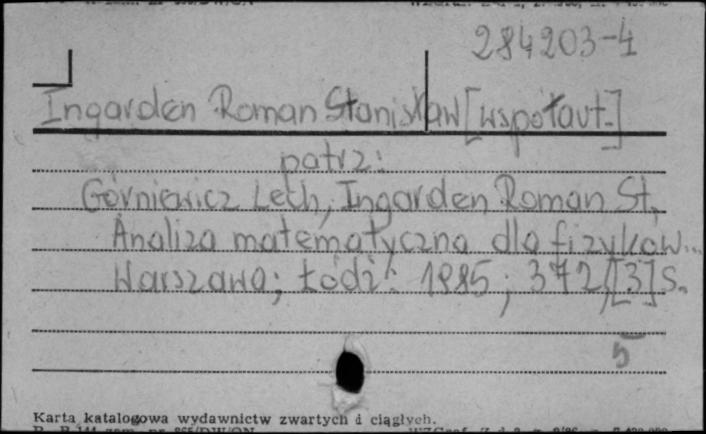 284203-4
Ingarden Roman Stanisław [współaut.]
patrz:
Górniewicz Lech, Ingarden Roman St.
Analiza matematyczna dla fizyków...
Warszawa; Łódź: 1985; 372, [3] s.
5
Karta katalogowa wydawnictw zwartych i ciągłych.